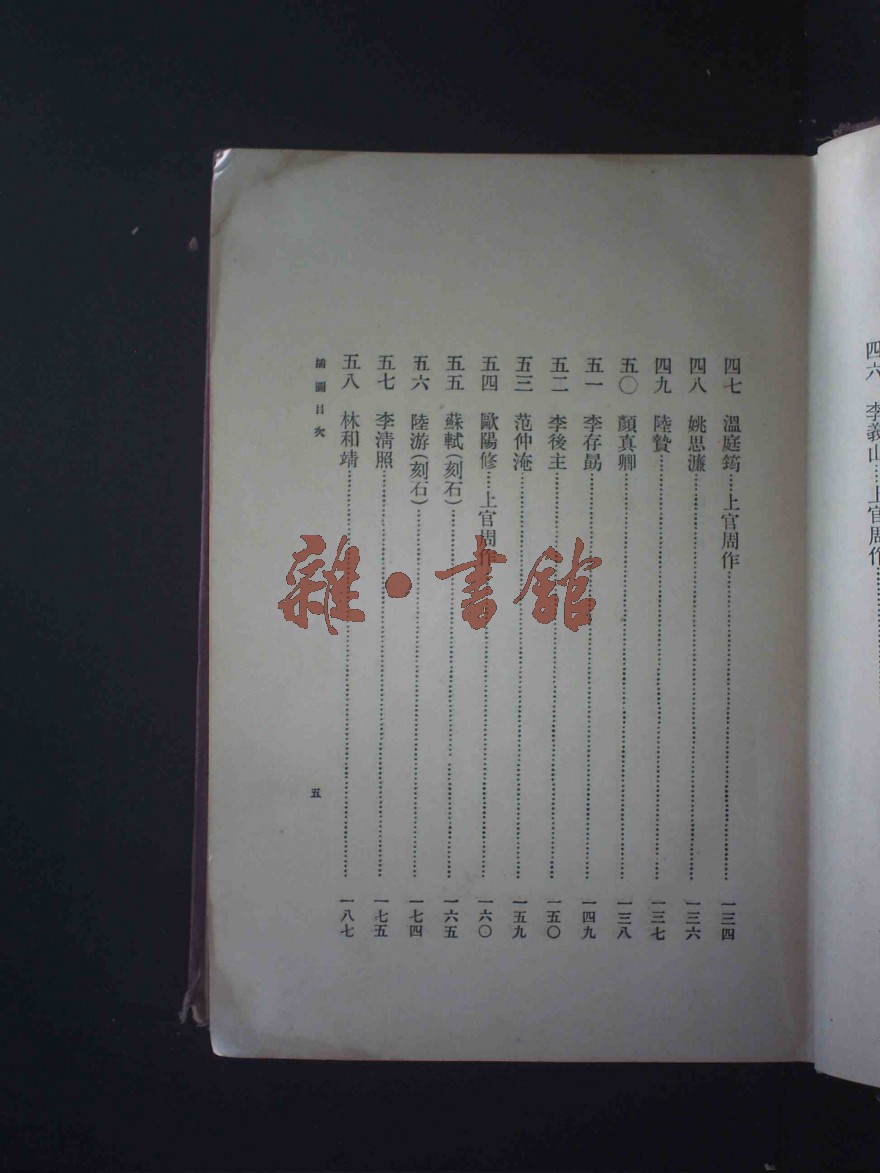 四六 李義山…上官周作
四七 溫庭筠…上官周作…一三四
四八 姚思濂…一三六
四九 陸贄…一三七
五〇 顏真卿…一三八
五一 李存勗…一四九
五二 李後主…一五〇
五三 范仲淹…一五九
五四 歐陽修…上官周作…一六〇
五五 蘇軾(刻石)…一六五
五六 陸游(刻石)…一七四
五七 李清照…一七五
五八 林和靖…一八七
插圖目次
五
雜·書館